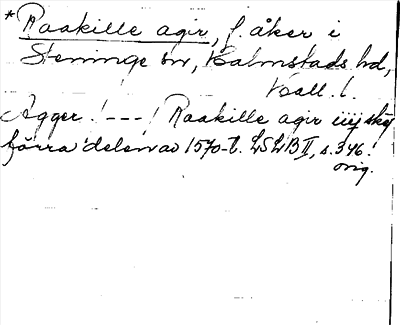 *Raakille agir, f. åker i
Steninge sn, Halmstads hd,
Hall. l.
Agger ! --- ! Raakille agir iiij skp
förra delen av 1570-t. LSLB II, s. 346.
orig.